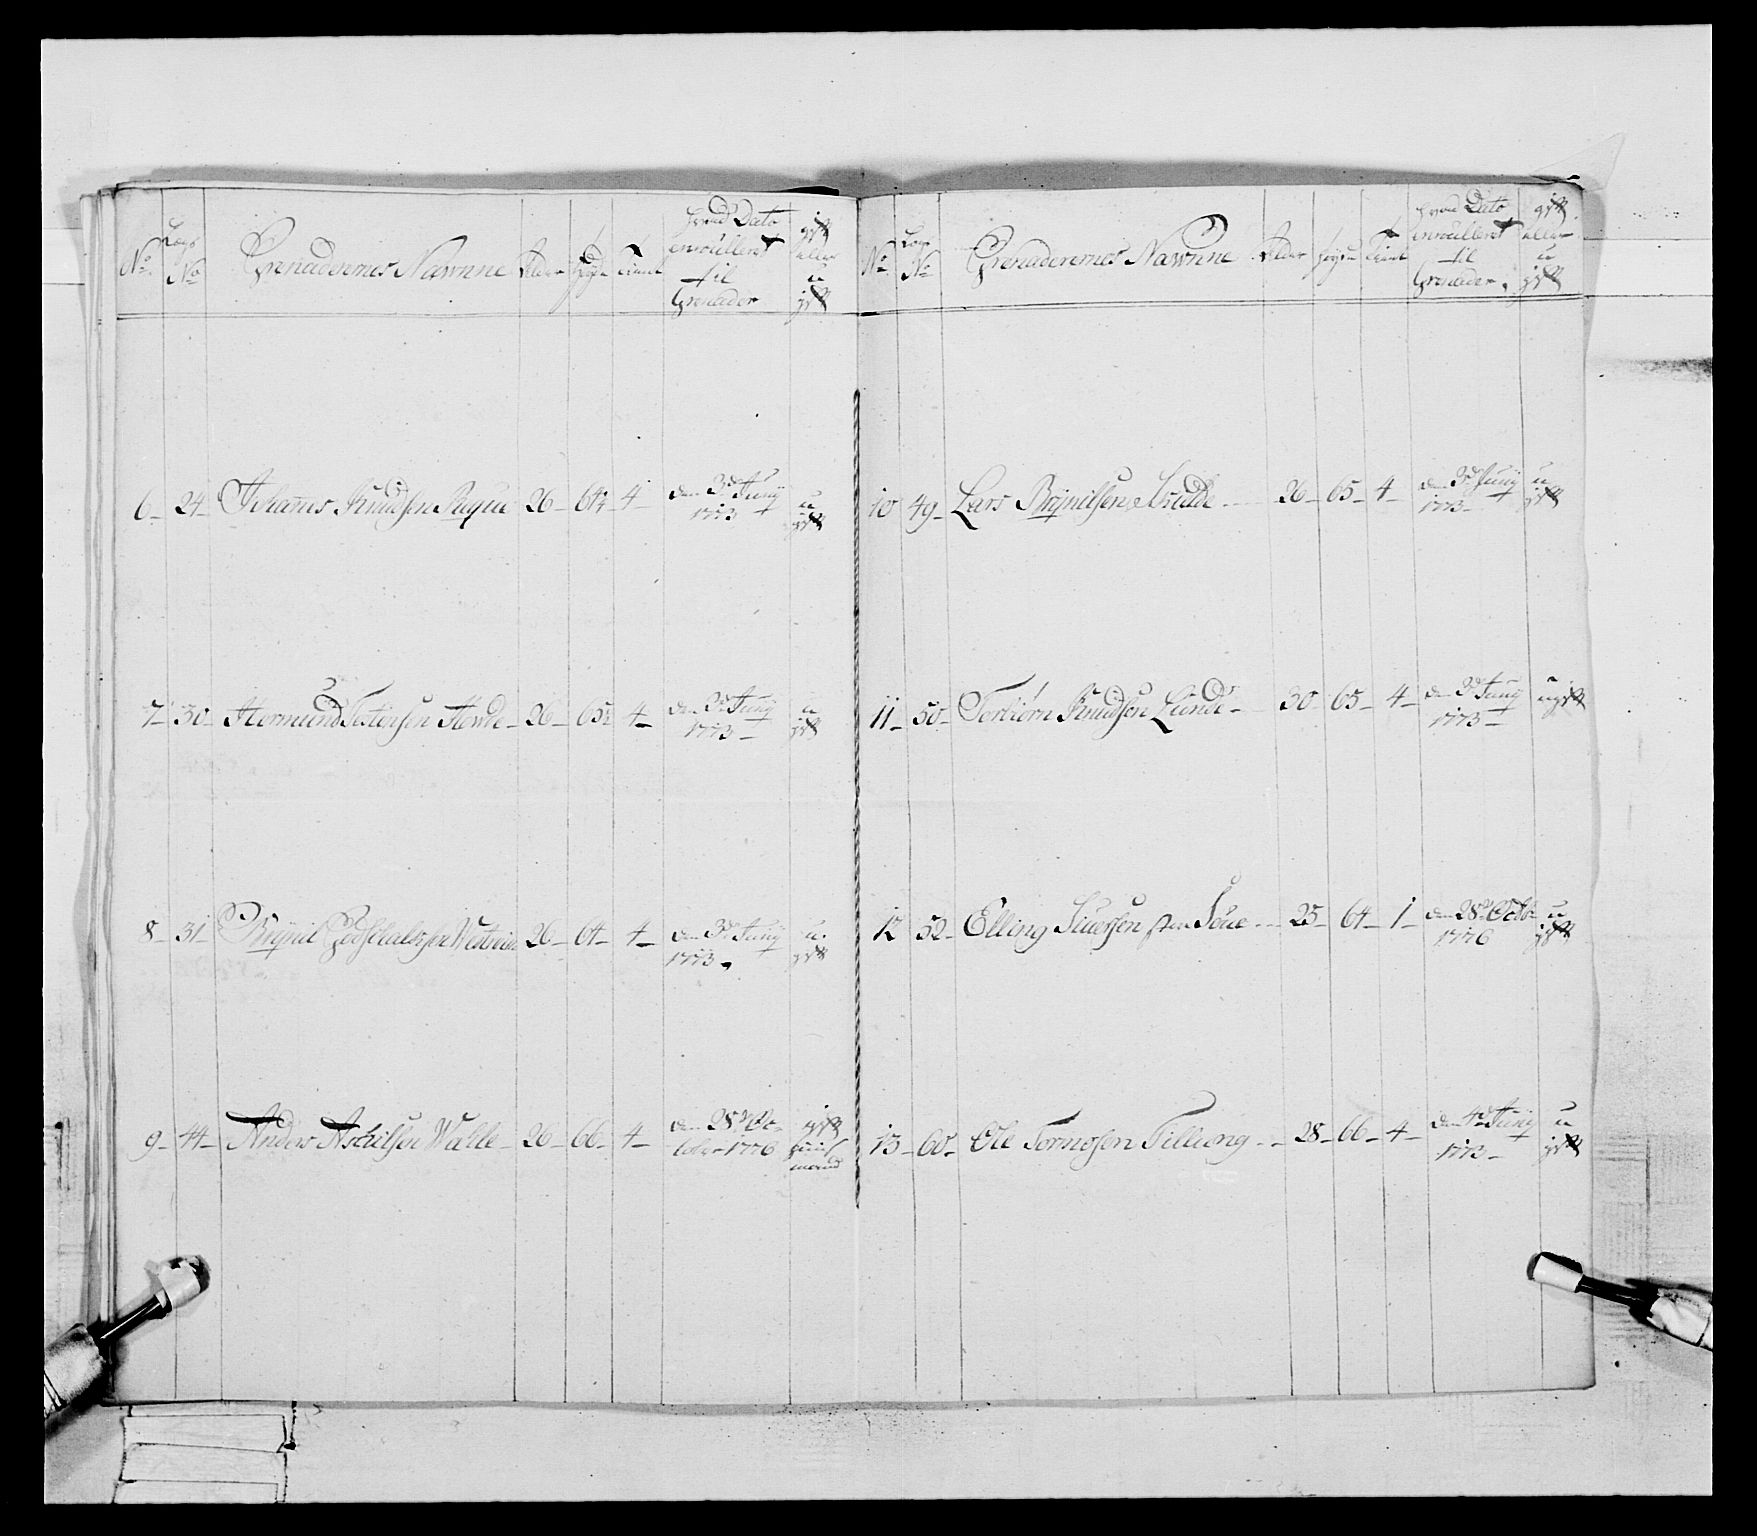 No. Lægs No. Grenaderernes Nawnne Alder Høyde Tient hvad Dato enroulleret til Grenader gift eller u gift
6 24 Johannes Knudsen Reque 26 64½ 4 den 3de Junij 1773 u gift
7 30 Hermund Torstensen Howde 26 65½ 4 den 3de Junij 1773 u gift
8 31 Brynil Godschalcksen 26 64 4 den 3de Junij 1773 u gift
9 44 Anders Askilsen Walle 26 66 4 den 28de Octobr 1776 gift huusmand
No. Lægs No. Grenaderernes Nawnne Alder Høyde Tient hvad Dato enroulleret til Grenader gift eller u gift
10 49 Lars Brynilsen 26 65 4 den 3de Junij 1773 u gift
11 50 Torbiørn Knudsen Lunde 30 65 4 den 3de Junij 1773 ugift
12 52 Elling Siursen 25 64 1 den 28de Octbr 1776 u gift
13 60 Ole Tormosen Tillung 28 66 4 den 4de Junij 1773 u gift